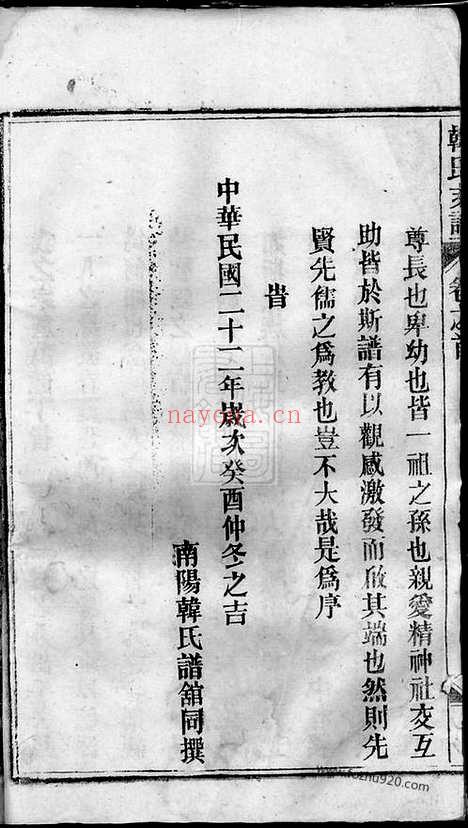 韓氏支譜 卷之首
尊長也卑幼也皆一祖之孫也親愛精神社交互
助皆於斯譜有以觀感激發而啟其端也然則先
賢先儒之爲教也豈不大哉是爲序
旹
中華民國二十二年歲次癸酉仲冬之吉
南陽韓氏譜舘同撰
nayona.cn
www.fozhu920.com